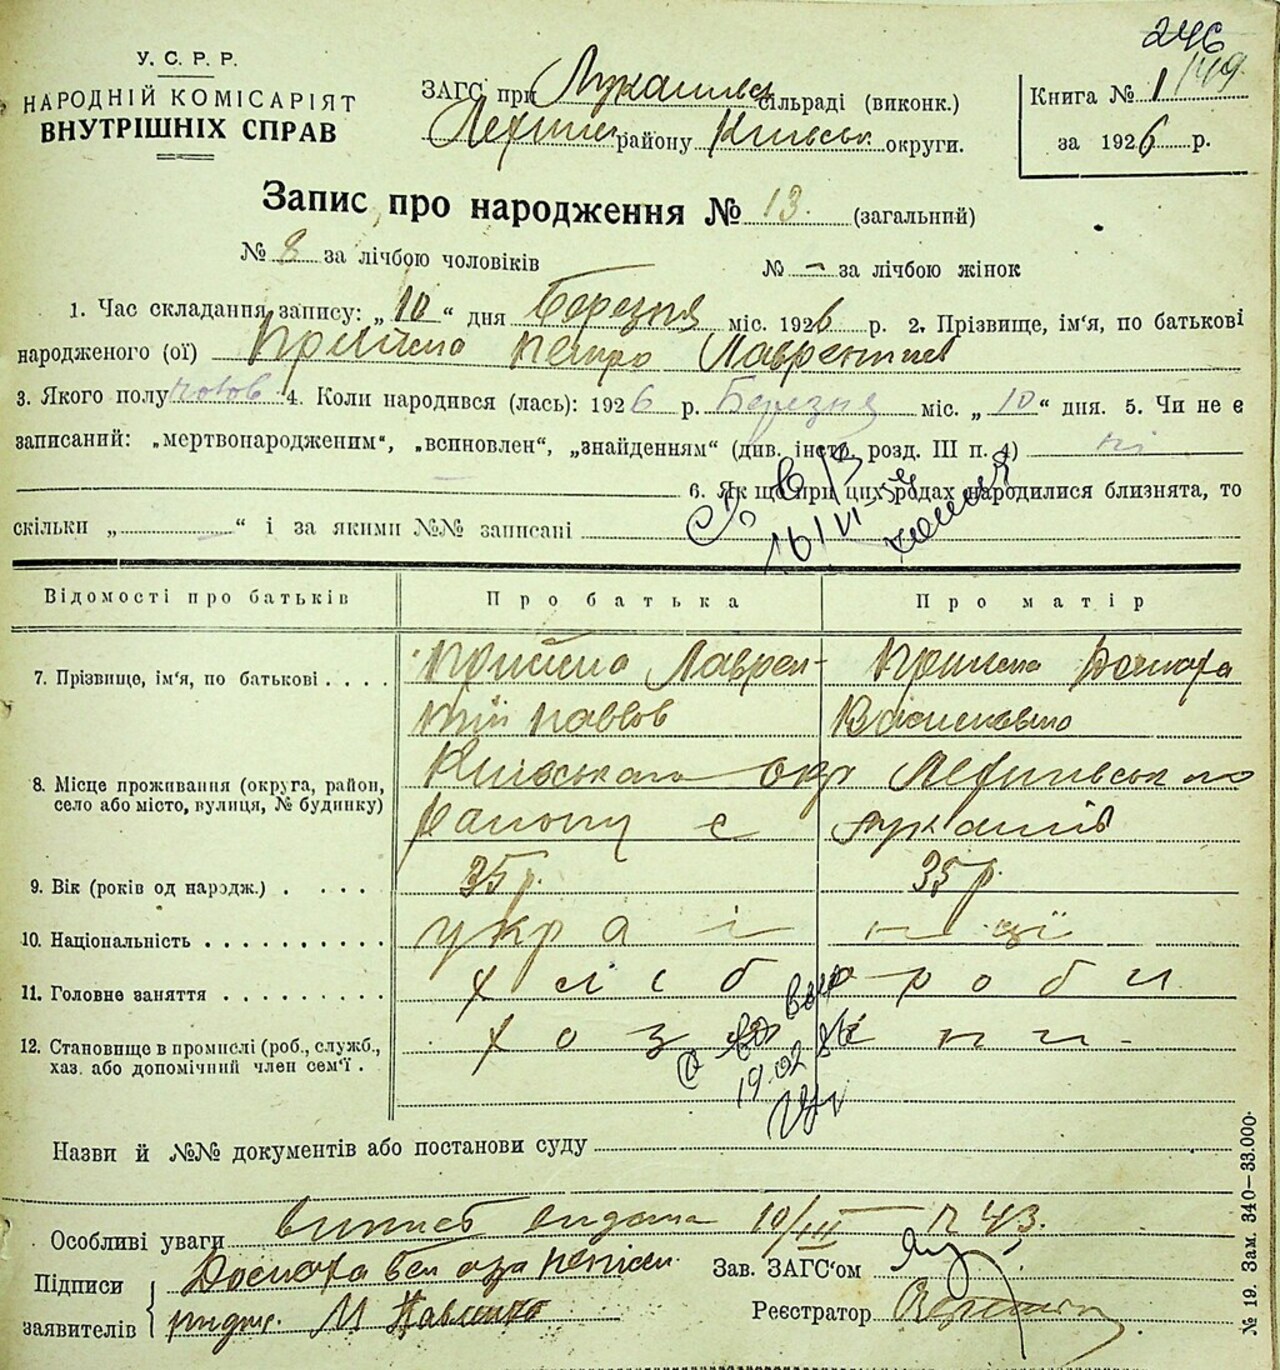 246
149.
У. С. Р. Р.
НАРОДНІЙ КОМІСАРІЯТ
ВНУТРІШНІХ СПРАВ
ЗАГС при сільраді (виконк.)
району Київськ. округи.
Книга № 1
за 1926 р.
Запис про народження № 13. (загальний)
№ 8 за лічбою чоловіків
№ — за лічбою жінок
1. Час складання запису: „10“ дня Березня міс. 1926 р. 2. Прізвище, ім'я, по батькові
народженого (ої) Прийма Петро Лаврентієв
3. Якого полу чолов. 4. Коли народився (лась): 1926 р. Березня міс. „10“ дня. 5. Чи не є
записаний: „мертвонародженим“, „всиновлен“, „знайденням“ (див. інстр. розд. III п. 4) ні
6. Як що при цих родах народилися близнята, то
скільки „ “ і за якими №№ записані
16/VI
Відомості про батьків
Про батька
Про матір
7. Прізвище, ім'я, по батькові . . . .
Прийма Лаврен-
тій Павлов
Прийма Домаха
Васильевна
8. Місце проживання (округа, район,
село або місто, вулиця, № будинку)
Київського окр
району с Лукашів
9. Вік (років од народж.) . . . . .
35 р.
35 р.
10. Національність . . . . . . . . . .
українці
11. Головне заняття . . . . . . . . .
хлібороби
12. Становище в промислі (роб., служб.,
хаз. або допомічний член сем'ї .
19.02
Назви й №№ документів або постанови суду
Особливі уваги видана 10/III № 43.
Підписи
заявителів
Домаха
М Павленко
Зав. ЗАГС'ом
Реєстратор
№ 19. Зам. 340—33.000.